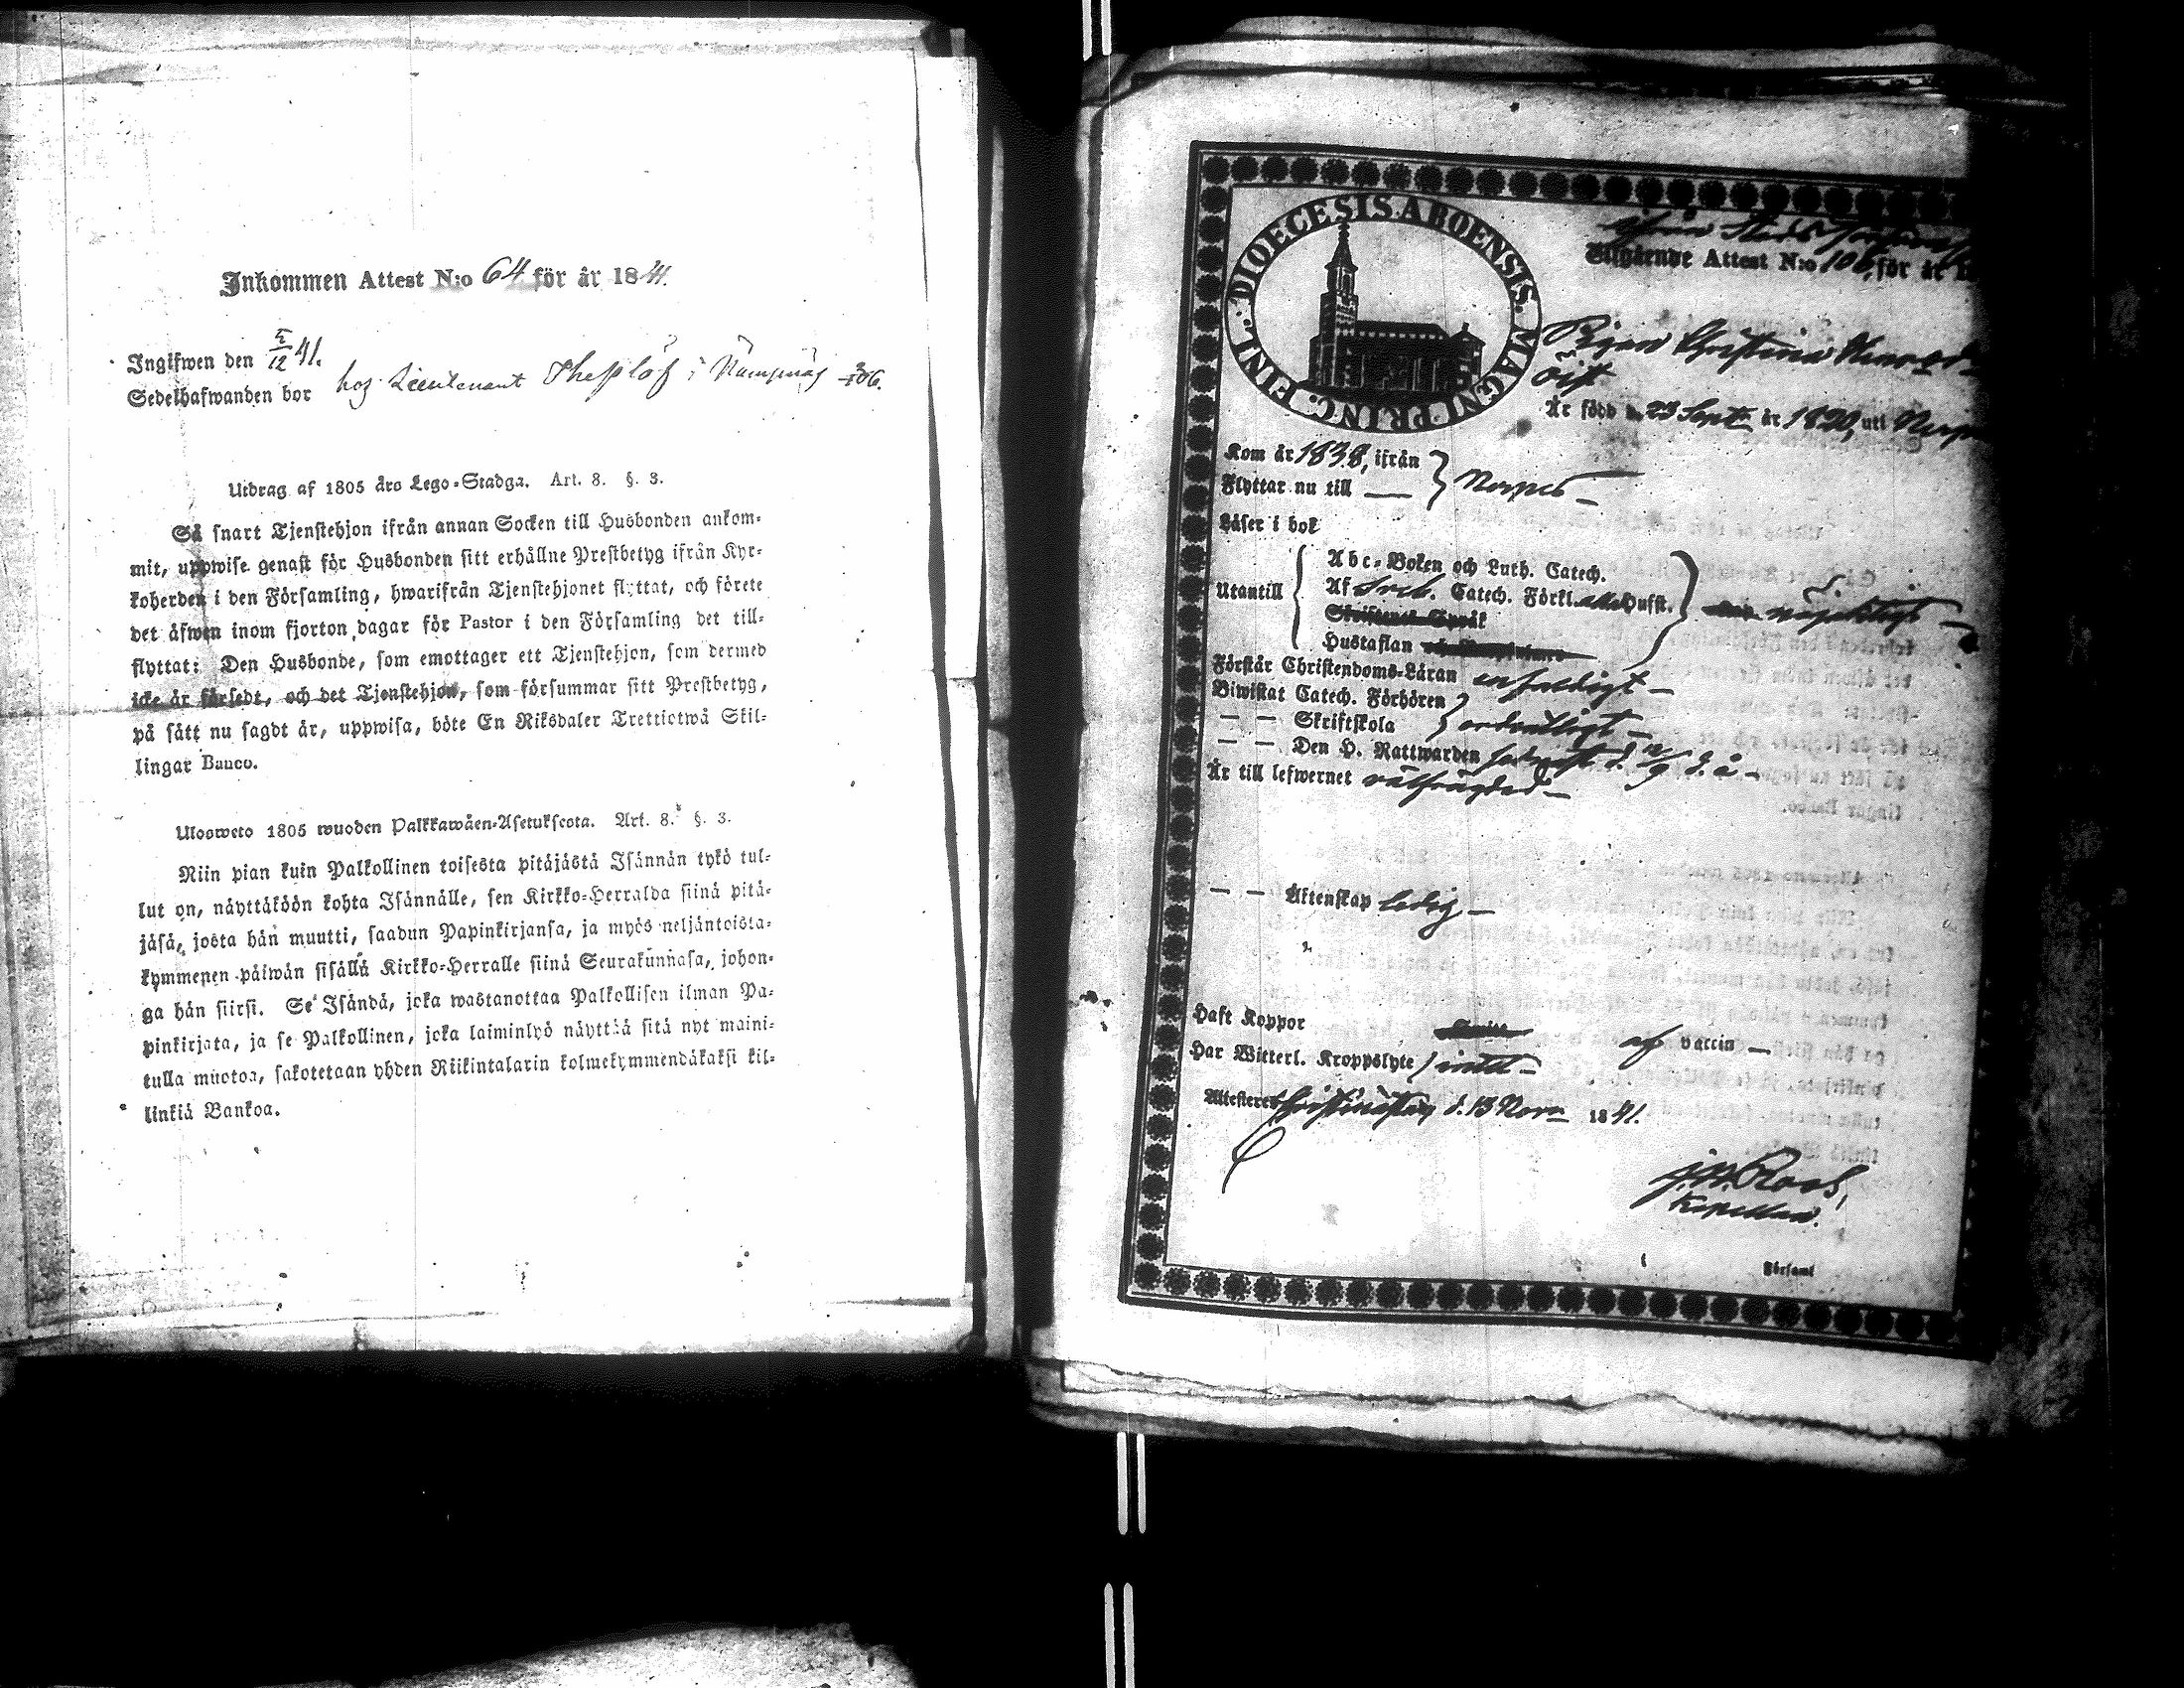 Inkommen Attest N:o 64 för år 1841.
Ingifwen den 5/12 41.
Sedelhafwanden bor hos Lieutenant Thesslöf i Nämpnäs 306.
Utdrag af 1805 års Lego-Stadga. Art. 8. §. 3.
Så snart Tjenstehjon ifrån annan Socken till Husbonden ankom-
mit, uppwise genast för Husbonden sitt erhållne Prestbetyg ifrån Kyr-
koherden i den Församling, hwarifrån Tjenstehjonet flyttat, och förete
det äfwen inom fjorton dagar för Pastor i den Församling det till-
flyttat: Den Husbonde, som emottager ett Tjenstehjon, som dermed
icke är försedt, och det Tjenstehjon, som försummar sitt Prestbetyg,
på sätt nu sagdt är, uppwisa, böte En Riksdaler Trettiotwå Skil-
lingar Banco.
Ulosweto 1805 wuoden Palkkawäen-Asetuksesta. Art. 8. §. 3.
Niin pian kuin Palkollinen toisesta pitäjästä Isännän tykö tul-
lut on, näyttäköön kohta Isännälle, sen Kirkko-Herralda siinä pitä-
jäsä, josta hän muutti, saadun Papinkirjansa, ja myös neljäntoista-
kymmenen päiwän sisällä Kirkko-Herralle siinä Seurakunnasa, johon-
ga hän siirsi. Se Isändä, joka wastanottaa Palkollisen ilman Pa-
pinkirjata, ja se Palkollinen, joka laiminlyö näyttää sitä nyt maini-
tulla muotoa, sakotetaan yhden Riikintalarin kolmekymmendäkaksi kil-
linkiä Bankoa.
DIOECESIS ABOENSIS. MAGNI PRINC. FINL.
ifrån Stads
Utgående Attest N:o 106, för år
Pigan Christina
Är född d. 23 Sept. år 1820, uti Nerpes
Kom år 1838, ifrån
Flyttar nu till — } Nerpes
Läser i bok
Utantill
Abc-Boken och Luth. Catech.
Af Sveb. Catech. Förkl. alla Hufst.
Skriftenes Språk
Hustaflan
nöjaktigt
Förstår Christendoms-Läran enfaldigt
Biwistat Catech. Förhören
— — Skriftskola } ordentligt
— — Den H. Nattwarden sednast d. 12/9 d. å.
Är till lefwernet wälfrägdad
— — Äktenskap ledig
Haft Koppor af vaccin
Har Witterl. Kroppslyte intet
Attesteres Christinestad d. 13 Nov. 1841.
J. W. Roos,
Kapellan.
Församl